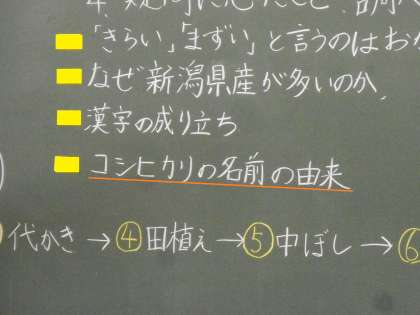 「きらい」「まずい」と言うのはおか
なぜ新潟県産が多いのか
漢字の成り立ち
コシヒカリの名前の由来
代かき→④田植え→⑤中ぼし→⑥